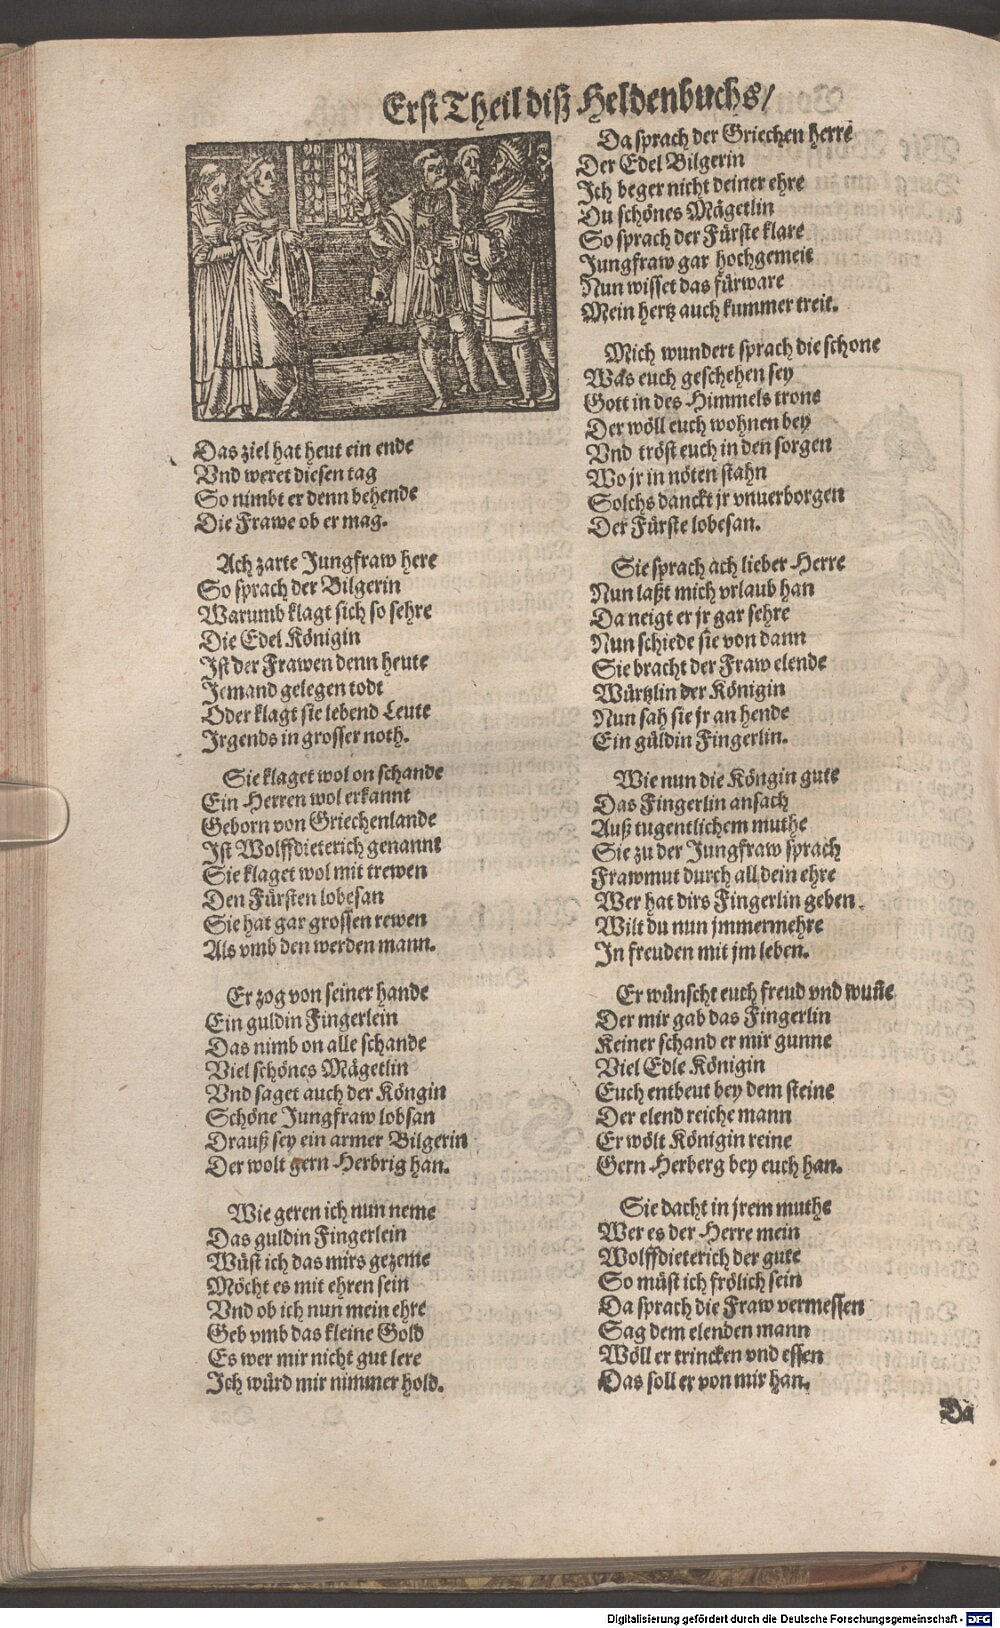 Erst Theil diß Heldenbuchs/
Das ziel hat heut ein ende
Vnd weret diesen tag
So nimbt er denn behende
Die Frawe ob er mag.
Ach zarte Jungfraw here
So sprach der Bilgerin
Warumb klagt sich so sehre
Die Edel Königin
Ist der Frawen denn heute
Jemand gelegen todt
Oder klagt sie lebend Leute
Irgends in grosser noth.
Sie klaget wol on schande
Ein Herren wol erkannt
Geborn von Griechenlande
Ist Wolffdieterich genannt
Sie klaget wol mit trewen
Den Fürsten lobesan
Sie hat gar grossen rewen
Als vmb den werden mann.
Er zog von seiner hande
Ein guldin Fingerlein
Das nimb on alle schande
Viel schönes Mägetlin
Vnd saget auch der Köngin
Schöne Jungfraw lobsan
Drauß sey ein armer Bilgerin
Der wolt gern Herbrig han.
Wie geren ich nun neme
Das guldin Fingerlein
Wüst ich das mirs gezeme
Möcht es mit ehren sein
Vnd ob ich nun mein ehre
Geb vmb das kleine Gold
Es wer mir nicht gut lere
Ich würd mir nimmer hold.
Da sprach der Griechen herre
Der Edel Bilgerin
Ich beger nicht deiner ehre
Du schönes Mägetlin
So sprach der Fürste klare
Jungfraw gar hochgemeit
Nun wisset das fürware
Mein hertz auch kummer treit.
Mich wundert sprach die schone
Was euch geschehen sey
Gott in des Himmels trone
Der wöll euch wohnen bey
Vnd tröst euch in den sorgen
Wo jr in nöten stahn
Solchs danckt jr vnuerborgen
Der Fürste lobesan.
Sie sprach ach lieber Herre
Nun laßt mich vrlaub han
Da neigt er jr gar sehre
Nun schiede sie von dann
Sie bracht der Fraw elende
Würtzlin der Königin
Nun sah sie jr an hende
Ein güldin Fingerlin.
Wie nun die Köngin gute
Das Fingerlin ansach
Auß tugentlichem muthe
Sie zu der Jungfraw sprach
Frawmut durch all dein ehre
Wer hat dirs Fingerlin geben
Wilt du nun jmmermehre
In freuden mit jm leben.
Er wünscht euch freud vnd wuñe
Der mir gab das Fingerlin
Keiner schand er mir gunne
Viel Edle Königin
Euch entbeut bey dem steine
Der elend reiche mann
Er wölt Königin reine
Gern Herberg bey euch han.
Sie dacht in jrem muthe
Wer es der Herre mein
Wolffdieterich der gute
So müst ich frölich sein
Da sprach die Fraw vermessen
Sag dem elenden mann
Wöll er trincken vnd essen
Das soll er von mir han.
Da
Digitalisierung gefördert durch die Deutsche Forschungsgemeinschaft - DFG